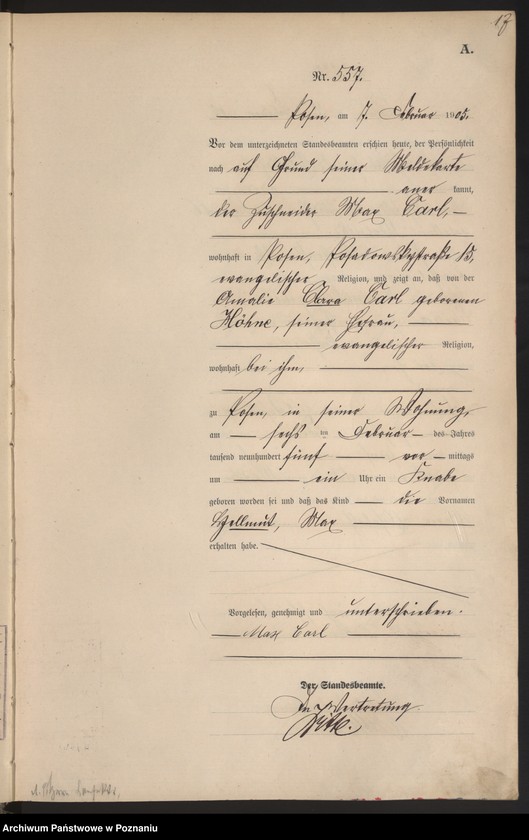 17
A.
Nr. 557.
Posen, am 7. Februar 1905.
Vor dem unterzeichneten Standesbeamten erschien heute, der Persönlichkeit
nach auf Grund seiner Meldekarte
aner kannt,
der Zuschneider Max Carl,
wohnhaft in Posen, Posadowskystraße 15,
evangelischer Religion, und zeigt an, daß von der
Amalie Clara Carl geborenen
Höhne, seiner Ehefrau,
evangelischer Religion,
wohnhaft bei ihm,
zu Posen, in seiner Wohnung,
am sechs ten Februar des Jahres
tausend neunhundert fünf vor mittags
um ein Uhr ein Knabe
geboren worden sei und daß das Kind die Vornamen
Hellmut, Max
erhalten habe.
Vorgelesen, genehmigt und unterschrieben.
Max Carl
Der Standesbeamte.
In Vertretung
Archiwum Państwowe w Poznaniu